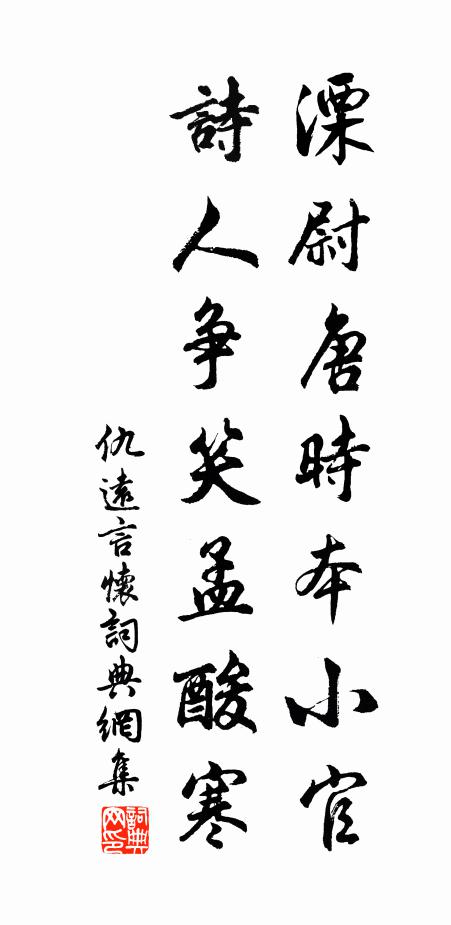 溧尉唐時本小官
詩人争笑孟酸寒
仇遠言懷詞典網集
詞典网印